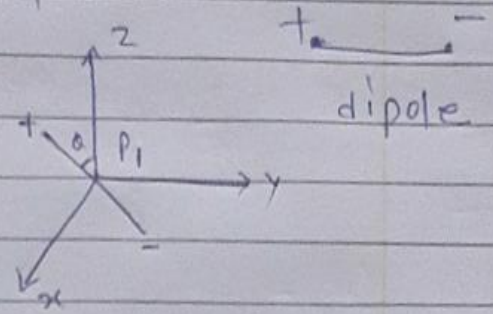 z + −
dipole
+ θ P₁
y
−
x